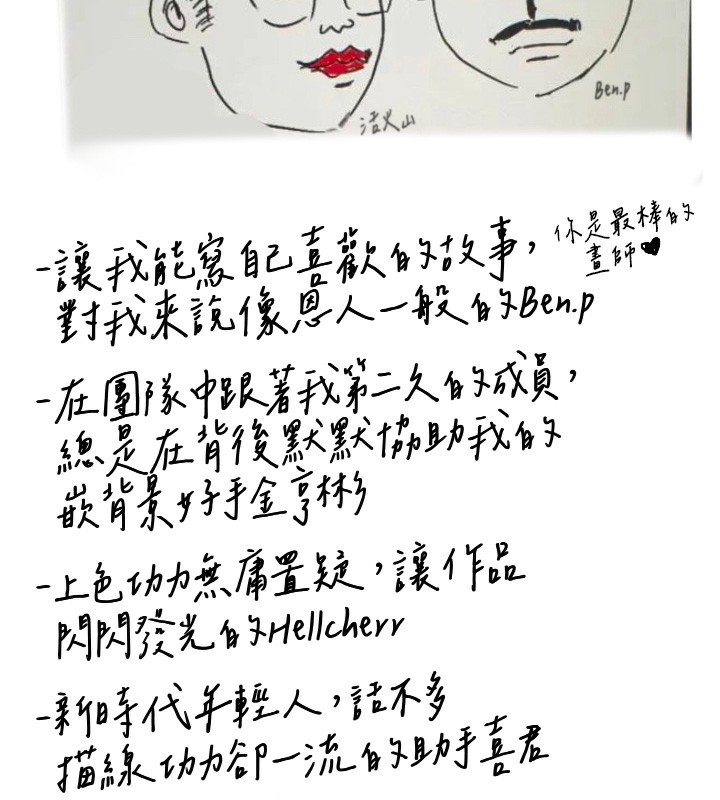 活火山
Ben.p
-讓我能寫自己喜歡的故事，
對我來說像恩人一般的Ben.p
你是最棒的
畫師♥
-在團隊中跟著我第二久的成員，
總是在背後默默協助我的
嵌背景好手金亨彬
-上色功力無庸置疑，讓作品
閃閃發光的Hellcherr
-新時代年輕人，話不多
描線功力卻一流的助手喜君